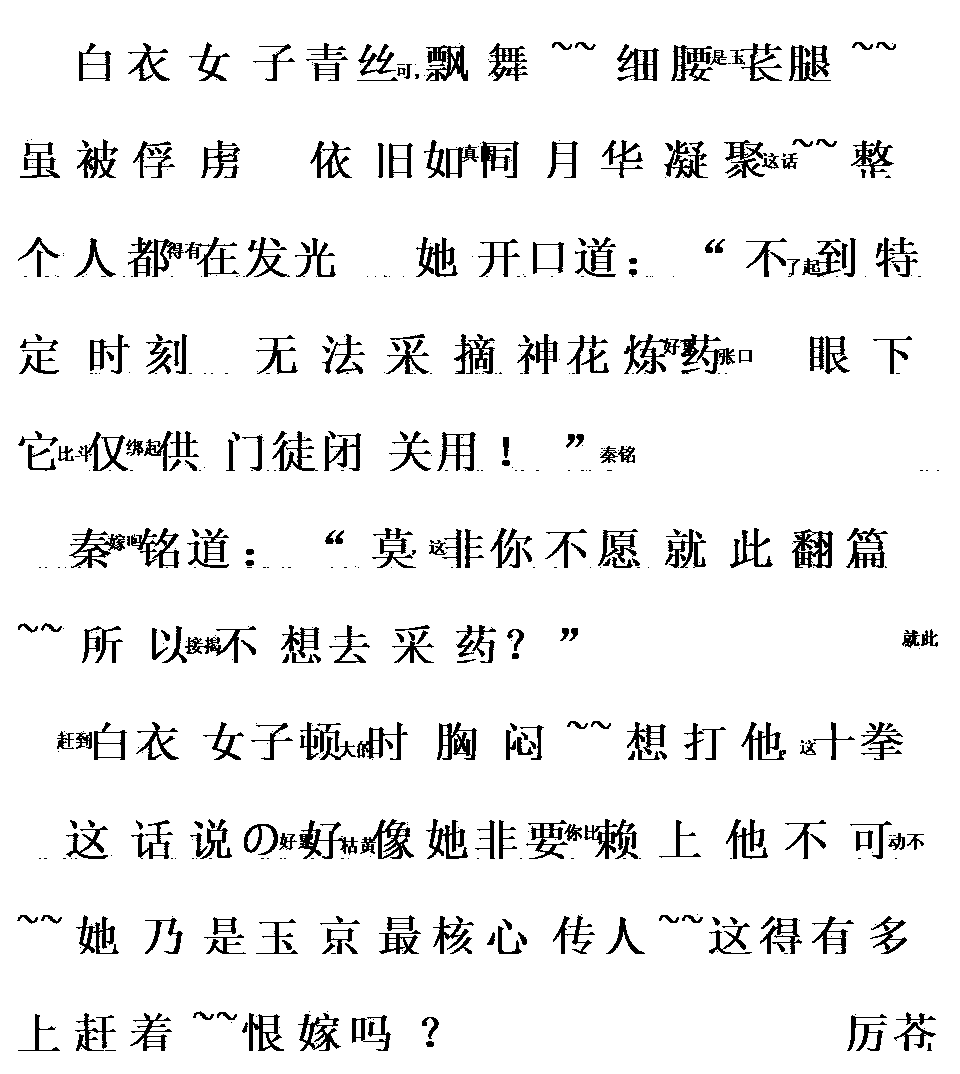 白衣女子青丝可，飘舞~~细腰是玉苌腿~~
虽被俘虏 依旧如真同月华凝聚这话~~整
个人都得有在发光 她开口道：“不了起到特
定时刻 无法采摘神花炼好药张口 眼下
它比斗仅绑起供门徒闭关用！”秦铭
秦嫁吗铭道：“莫，这非你不愿就此翻篇
~~所以接揭不想去采药？” 就此
赶到白衣女子顿大的时胸闷~~想打他，这十拳
这话说の好好枯黄像她非要你比赖上他不可动不
~~她乃是玉京最核心传人~~这得有多
上赶着~~恨嫁吗？ 厉苍